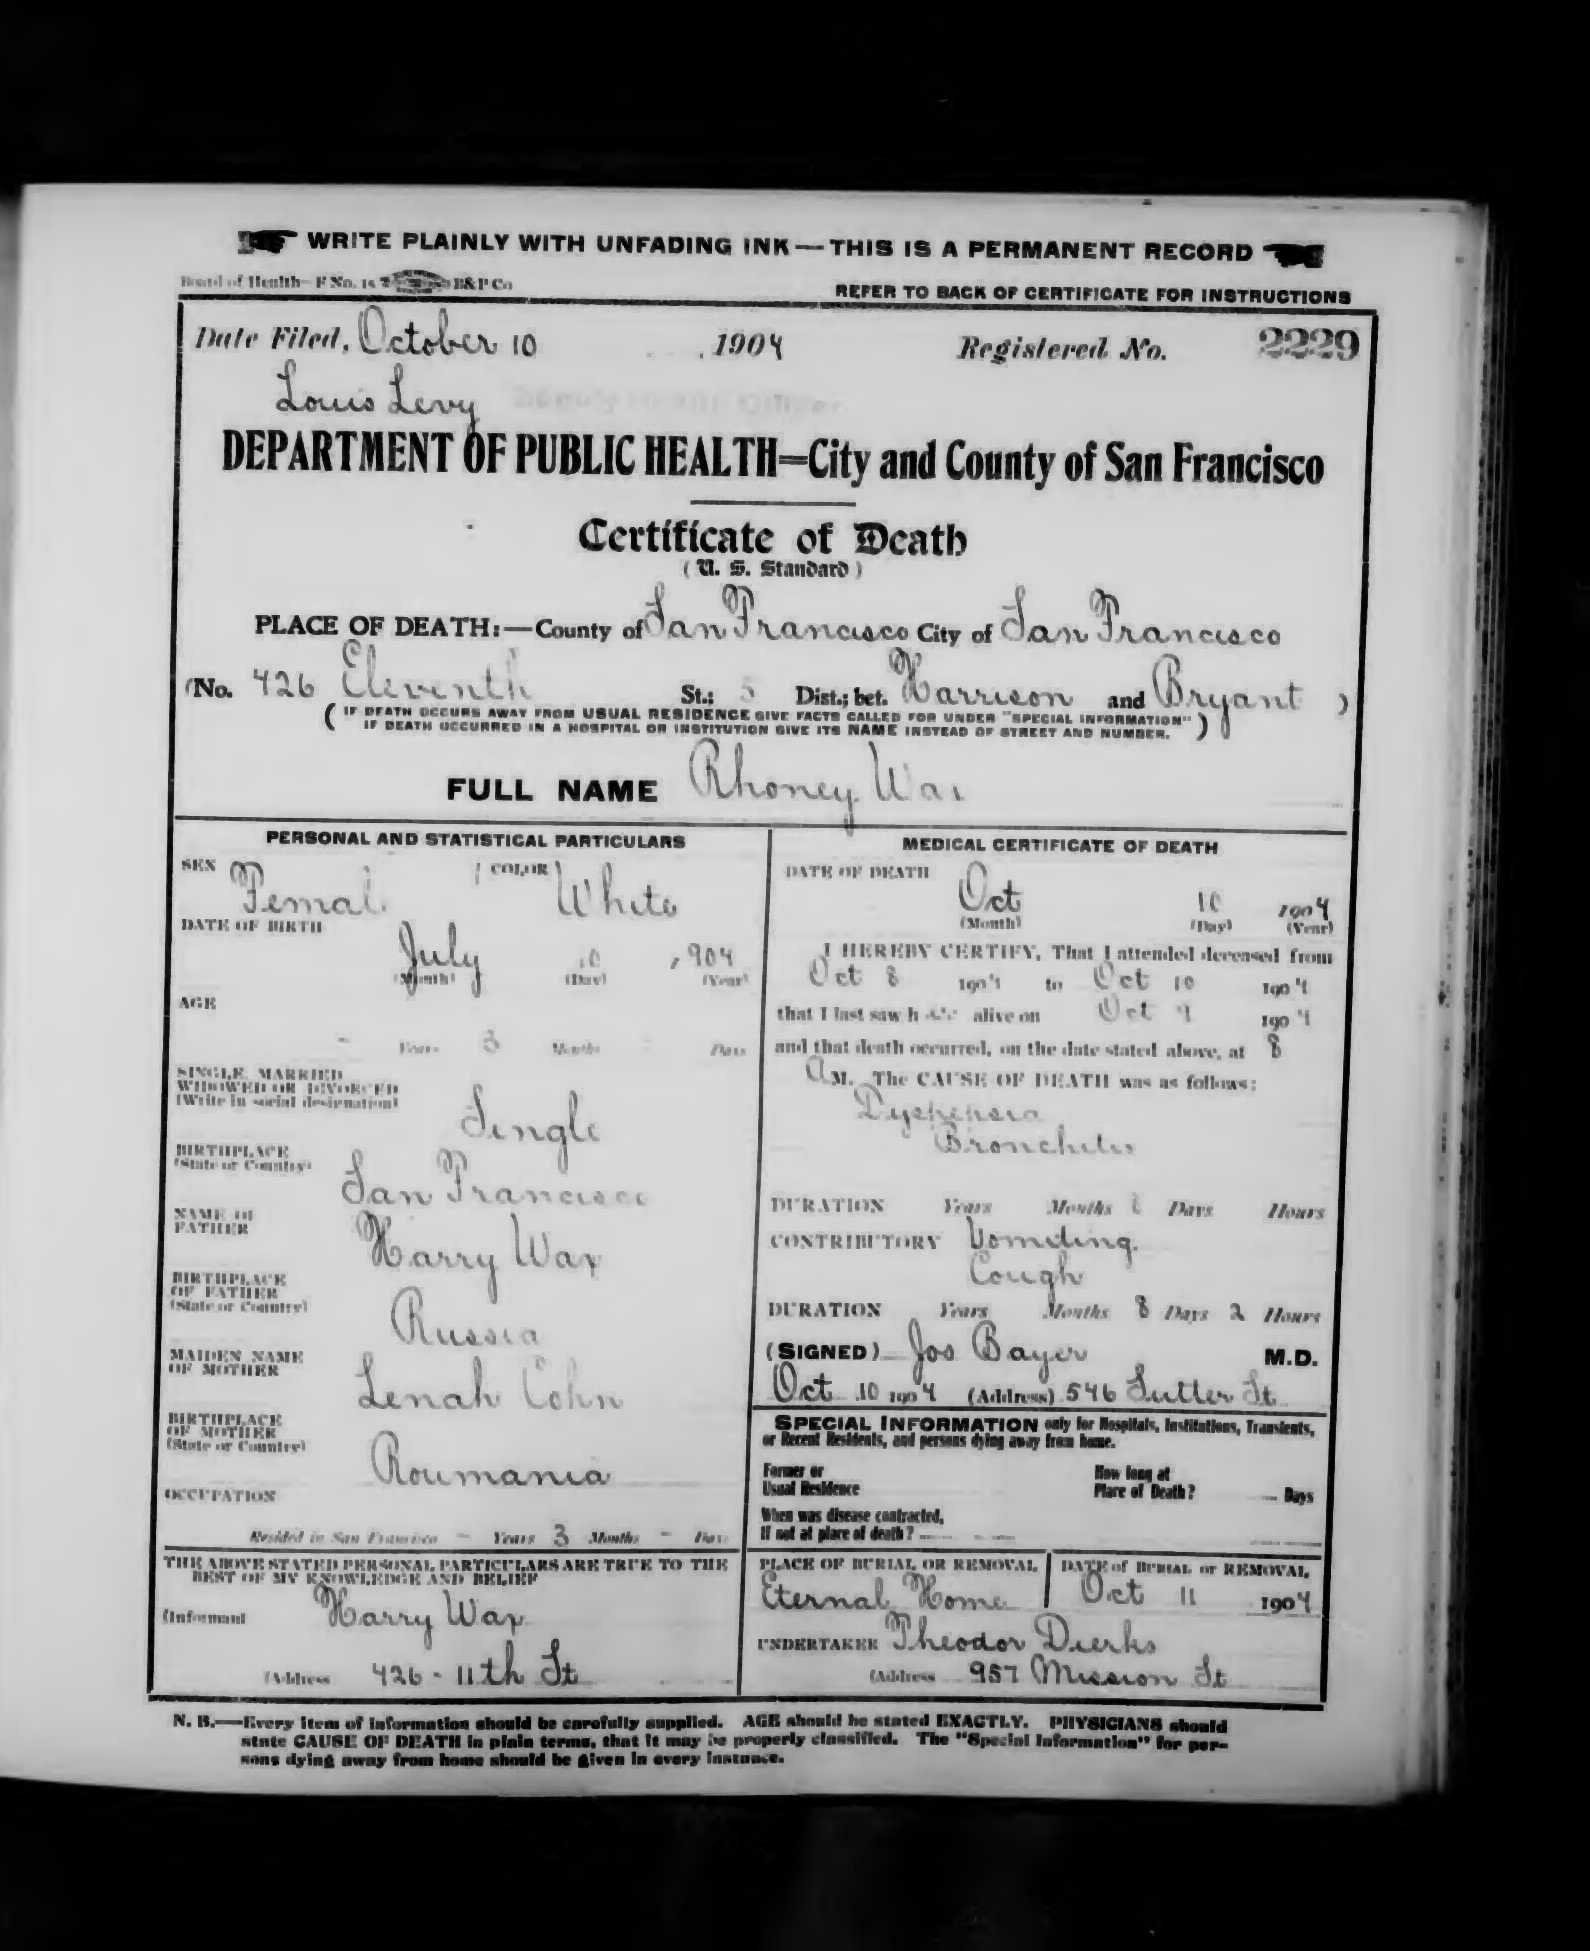 WRITE PLAINLY WITH UNFADING INK—THIS IS A PERMANENT RECORD
Board of Health—F No. 15 B&P Co
REFER TO BACK OF CERTIFICATE FOR INSTRUCTIONS
Date Filed, October 10, 1904 Registered No. 2229
Louis Levy Deputy Health Officer
DEPARTMENT OF PUBLIC HEALTH=City and County of San Francisco
Certificate of Death
(U. S. Standard)
PLACE OF DEATH:—County of San Francisco City of San Francisco
(No. 426 Eleventh St.; 5 Dist.; bet. Harrison and Bryant )
( IF DEATH OCCURS AWAY FROM USUAL RESIDENCE GIVE FACTS CALLED FOR UNDER "SPECIAL INFORMATION" )
IF DEATH OCCURRED IN A HOSPITAL OR INSTITUTION GIVE ITS NAME INSTEAD OF STREET AND NUMBER.
FULL NAME Rhoney Wax
PERSONAL AND STATISTICAL PARTICULARS
SEX Female COLOR White
DATE OF BIRTH
July 10, 904
(Month) (Day) (Year)
AGE
- Years 3 Months - Days
SINGLE, MARRIED
WIDOWED OR DIVORCED
(Write in social designation)
Single
BIRTHPLACE
(State or Country)
San Francisco
NAME OF
FATHER
Harry Wax
BIRTHPLACE
OF FATHER
(State or Country)
Russia
MAIDEN NAME
OF MOTHER
Lenah Cohn
BIRTHPLACE
OF MOTHER
(State or Country)
Roumania
OCCUPATION
Resided in San Francisco - Years 3 Months - Days
THE ABOVE STATED PERSONAL PARTICULARS ARE TRUE TO THE
BEST OF MY KNOWLEDGE AND BELIEF
(Informant Harry Wax
(Address 426 - 11th St
MEDICAL CERTIFICATE OF DEATH
DATE OF DEATH
Oct 10 1904
(Month) (Day) (Year)
I HEREBY CERTIFY, That I attended deceased from
Oct 8 1904 to Oct 10 1904
that I last saw h alive on Oct 9 1904
and that death occurred, on the date stated above, at 8
A M. The CAUSE OF DEATH was as follows:
Dyspepsia
Bronchitis
DURATION Years Months 8 Days Hours
CONTRIBUTORY Vomiting
Cough
DURATION Years Months 8 Days 2 Hours
(SIGNED) Jos Bayer M.D.
Oct 10 1904 (Address) 546 Sutter St
SPECIAL INFORMATION only for Hospitals, Institutions, Transients,
or Recent Residents, and persons dying away from home.
Former or
Usual Residence
How long at
Place of Death? Days
When was disease contracted,
If not at place of death?
PLACE OF BURIAL OR REMOVAL
Eternal Home
DATE of BURIAL or REMOVAL
Oct 11 1904
UNDERTAKER Theodor Dierks
(Address 957 Mission St
N. B.—Every item of information should be carefully supplied. AGE should be stated EXACTLY. PHYSICIANS should
state CAUSE OF DEATH in plain terms, that it may be properly classified. The "Special Information" for per-
sons dying away from home should be given in every instance.